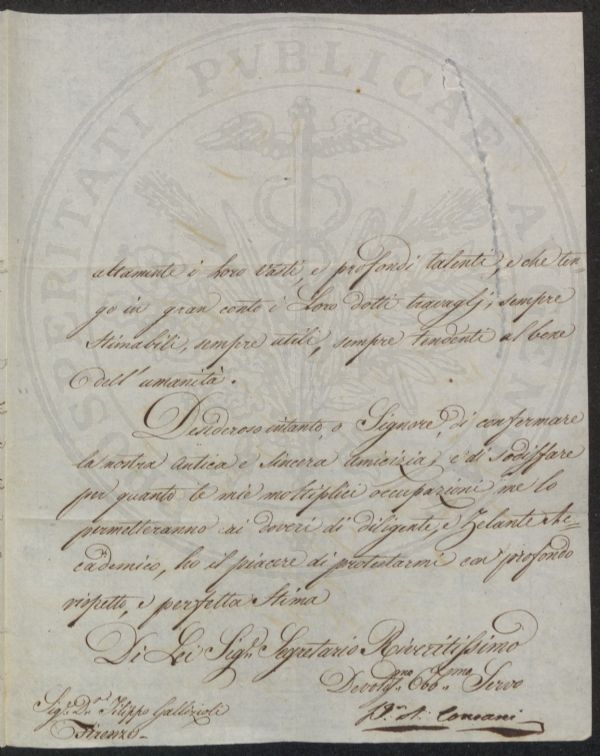 altamente i loro vasti, e profondi talenti, e che ten,
go in gran conto i Loro dotti travaglj, sempre
stimabili, sempre utili, sempre tendenti al bene
dell'umanità.
Desideroso intanto, o Signore, di confermare
la nostra antica e sincera amicizia, e di sodisffare
per quanto le mie moltiplici occupazioni me lo
permetteranno ai doveri di diligente, e Zelante Ac=
cademico, ho il piacere di protestarmi con profondo
rispetto, e perfetta stima
Di Lei Sigr. Segretario Riveritissimo
Devotmo Obbmo Servo
Sigr. Dr. Filippo Gallizioli
Firenze